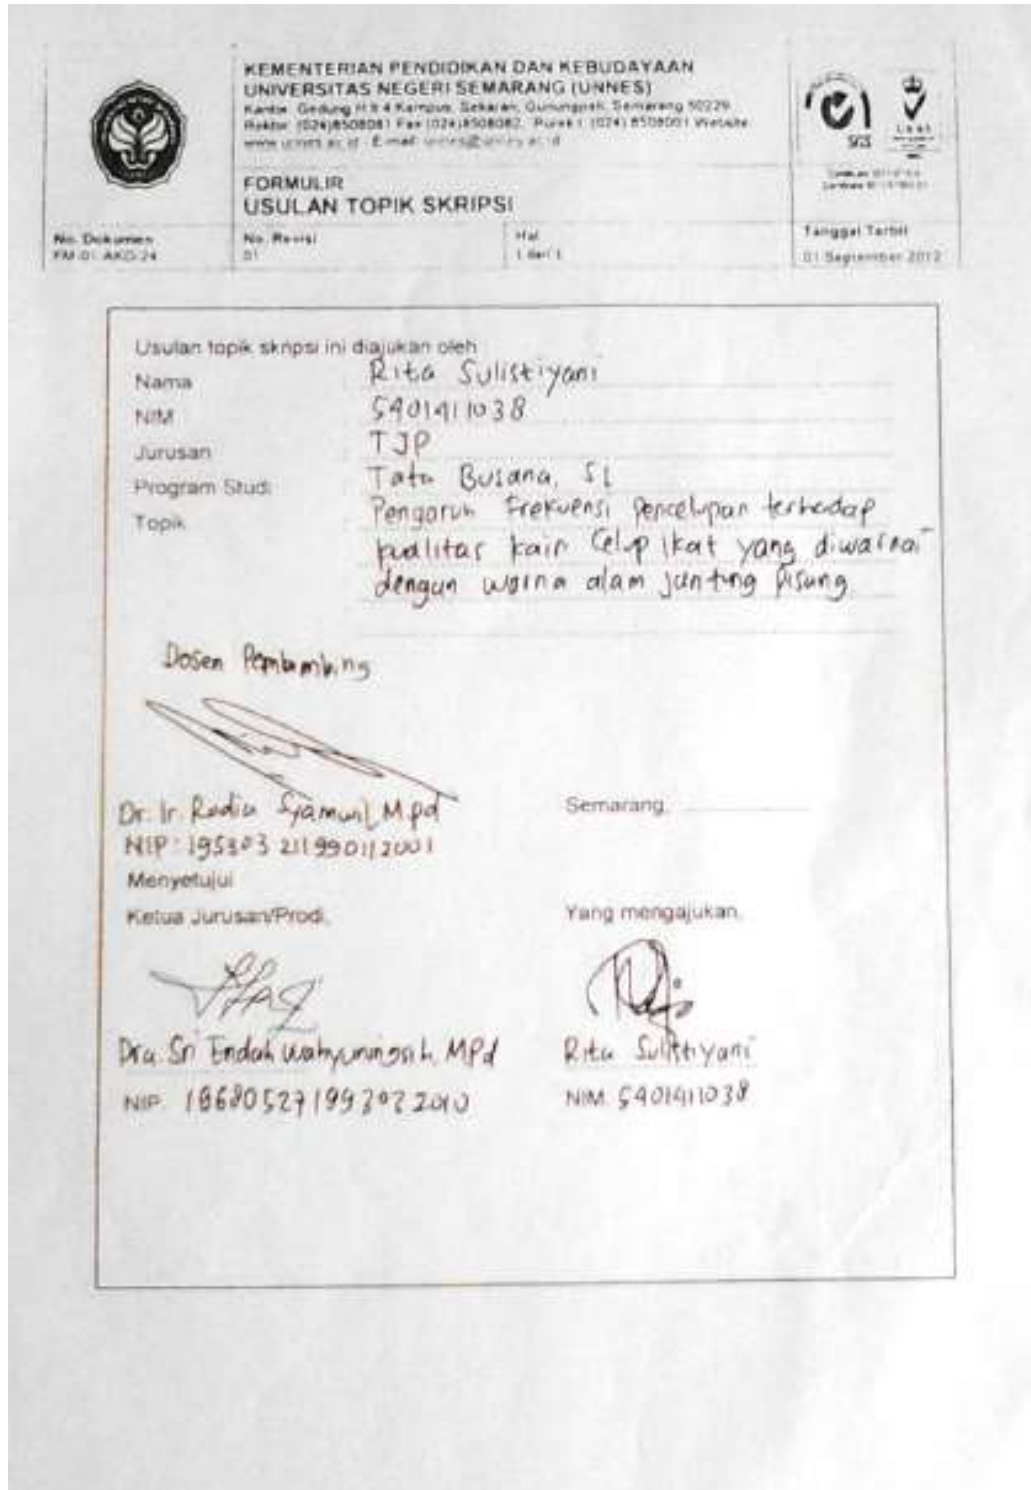 KEMENTERIAN PENDIDIKAN DAN KEBUDAYAAN
UNIVERSITAS NEGERI SEMARANG (UNNES)
Kantor: Gedung H lt 4 Kampus, Sekaran, Gunungpati, Semarang 50229
Rektor: (024)8508081 Fax (024)8508082, Purek I: (024) 8508001 Website:
www.unnes.ac.id E-mail: unnes@unnes.ac.id
SGS
UKAS
FORMULIR
USULAN TOPIK SKRIPSI
No. Dokumen
FM-01-AKD-24
No. Revisi
01
Hal
1 dari 1
Tanggal Terbit
01 September 2012
Usulan topik skripsi ini diajukan oleh
Nama : Rita Sulistiyani
NIM : 5401411038
Jurusan : TJP
Program Studi : Tata Busana, S1
Topik : Pengaruh Frekuensi Pencelupan terhadap
kualitas kain Celup ikat yang diwarnai
dengan warna alam jantung Pisang
Dosen Pembimbing
Dr. Ir. Rodia Syamwil, M.pd
NIP : 195303 211990112001
Semarang,
Menyetujui
Ketua Jurusan/Prodi,
Yang mengajukan,
Dra. Sri Endah Wahyuningsih, MPd
Rita Sulistiyani
NIP. 196805271993032010
NIM. 5401411038